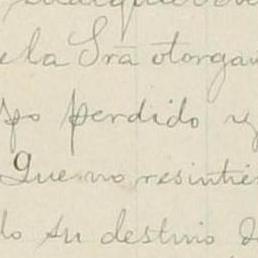 e la Sra otorgan
po perdido y
Que no resintie
do su destino d